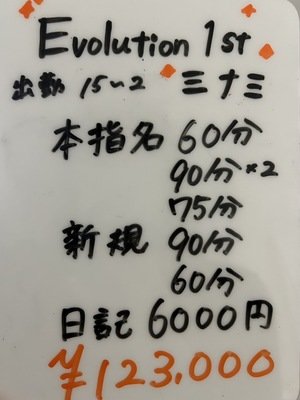 Evolution 1st
出勤 15〜2 三十三
本指名 60分
90分×2
75分
新規 90分
60分
日記 6000円
¥123,000